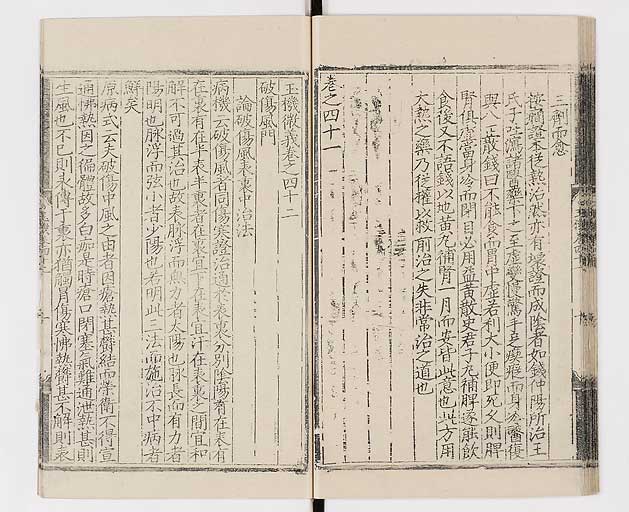 三劑而愈
按癎證本從熱治然亦有壞證而成陰者如錢仲陽所治王
氏子吐瀉諸醫藥下之至虛變慢驚手足瘈瘲而身冷醫復
與八正散錢曰不能食而胃中虛若利大小便即死久則脾
腎俱虛當身冷而閉目必用益黃散史君子丸補脾遂能飲
食後又不語錢以地黃丸補腎一月而安皆此意也此方用
大熱之藥乃從權以救前治之失非常治之道也
卷之四十一
玉機微義卷之四十二
破傷風門
論破傷風表裏中治法
病機云破傷風者同傷寒證治通於表裏分別陰陽有在表有
在裏有在半表半裏者在裏宜下在表宜汗在表裏之間宜和
解不可過其治也故表脉浮而無力者太陽也脉長而有力者
陽明也脉浮而弦小者少陽也若明此三法而施治不中病者
鮮矣
原病式云夫破傷中風之由者因瘡熱甚欝結而榮衛不得宣
通怫熱因之徧體故多白痂是時瘡口閉塞氣難通泄熱甚則
生風也不已則表傳于裏亦猶傷寒怫熱欝甚不解則表